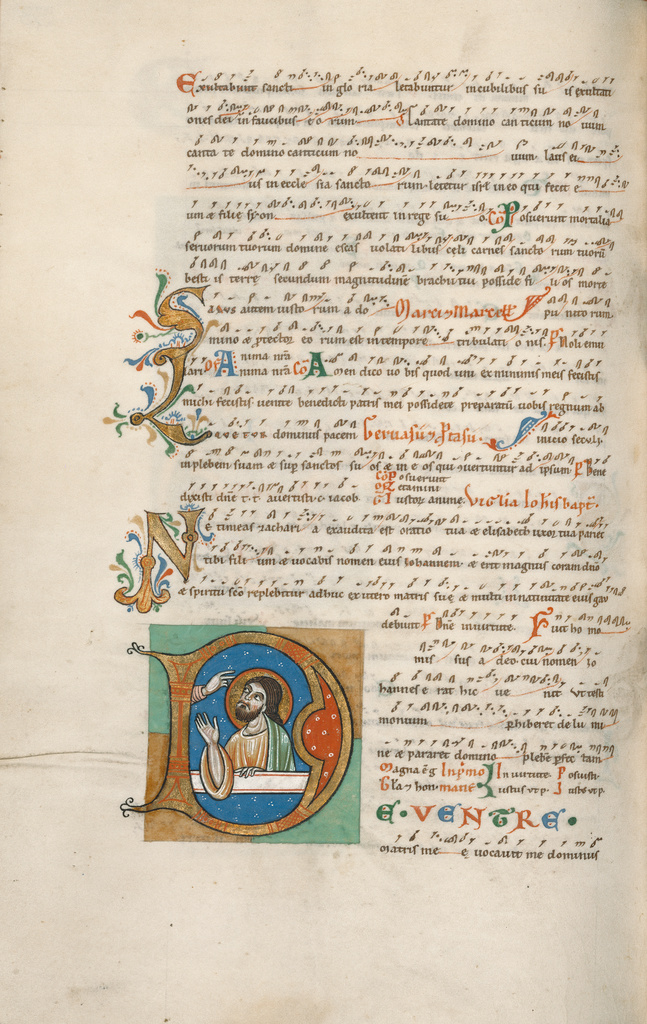 Exultabunt sancti in glo ria letabuntur in cubilibus su is exultati
ones dei in faucibus e o rum. Cantate domino can ticum no uum
canta te domino canticum no uum laus ei
us in eccle sia sancto rum letetur isrl in eo qui fecit e
um & filie syon exultent in rege su o. Co Posuerunt mortalia
seruorum tuorum domine escas uolati libus celi carnes sancto rum tuorum
besti is terre secundum magnitudinem brachii tui posside fi li os morte
Salus autem iusto rum a do Marci & Marcell pu nito rum
mino & ptector eo rum est in tempore tribulati o nis. Ps Noli emu
lari Of Anima nra Co Amen dico uo bis quod uni ex minimis meis fecistis
michi fecistis uenite benedicti patris mei possidete preparatum uobis regnum ab
Loquetur dominus pacem Geruasii & Ptasii. inicio seculi
in plebem suam & sup sanctos su os & in e os qui uertuntur ad ipsum. Ps Bene
dixisti dne t. t. auertisti c. iacob.
Co Posuerunt
Gr Letamini
Iustor anime. Vigilia Iohis bapt.
Ne timeas zachari a exaudita est oratio tua & elisabeth uxor tua pariet
tibi fili um & uocabis nomen eius Iohannem & erit magnus coram dno
& spiritu sco replebitur adhuc ex utero matris sue & multi in natiuitate eius gau
debunt Ps Dne in uirtute. Fuit ho mo
mis sus a deo cui nomen io
hannes e rat hic ue nit ut testi
monium phiberet de lu mi
ne & pararet domino plebe pfec tam
Magna e g In pmo In uirtute. Posuisti.
Gla & hon. mane Iustus ut p. Iustus ut p.
DE VENTRE
matris me e uocauit me dominus